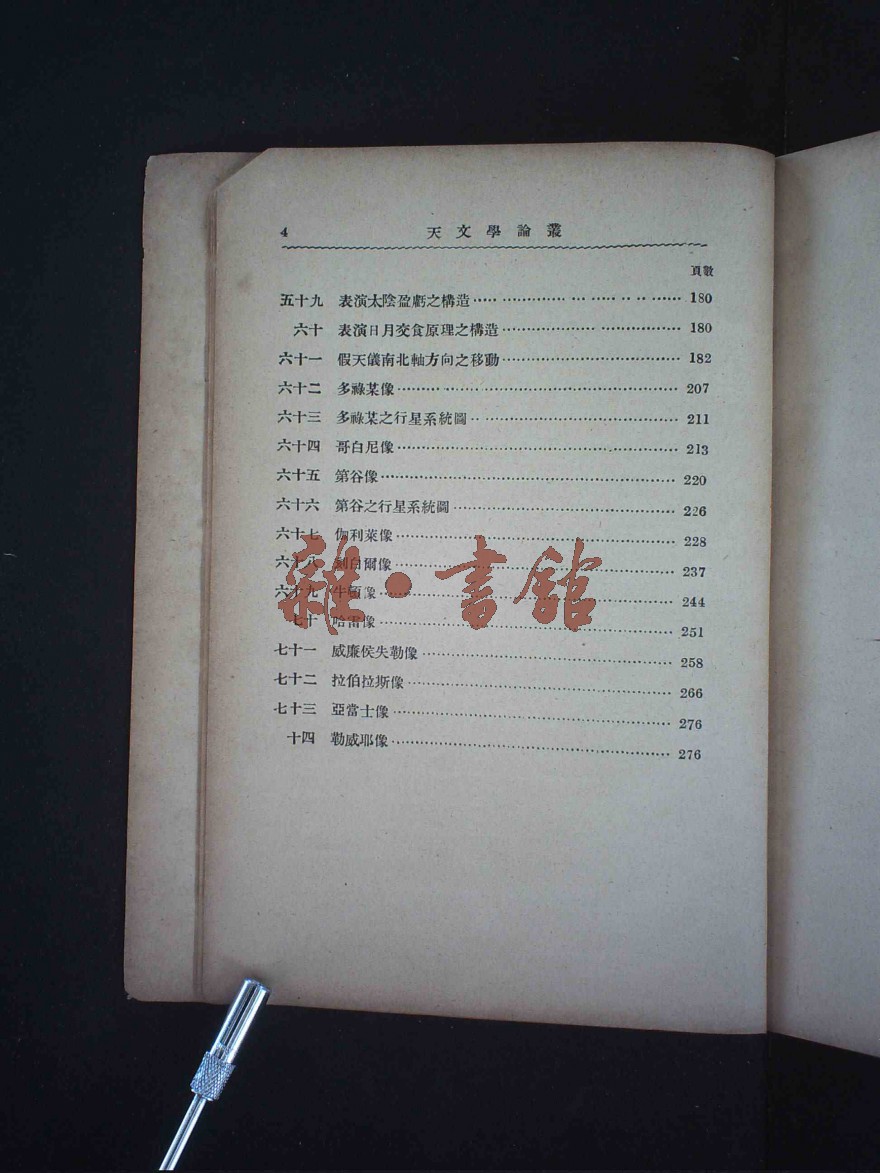 4 天文學論叢
頁數
五十九 表演太陰盈虧之構造 180
六十 表演日月交食原理之構造 180
六十一 假天儀南北軸方向之移動 182
六十二 多祿某像 207
六十三 多祿某之行星系統圖 211
六十四 哥白尼像 213
六十五 第谷像 220
六十六 第谷之行星系統圖 226
六十七 伽利萊像 228
六十八 刻白爾像 237
六十九 牛頓像 244
七十 哈雷像 251
七十一 威廉侯失勒像 258
七十二 拉伯拉斯像 266
七十三 亞當士像 276
十四 勒威耶像 276
雜·書館